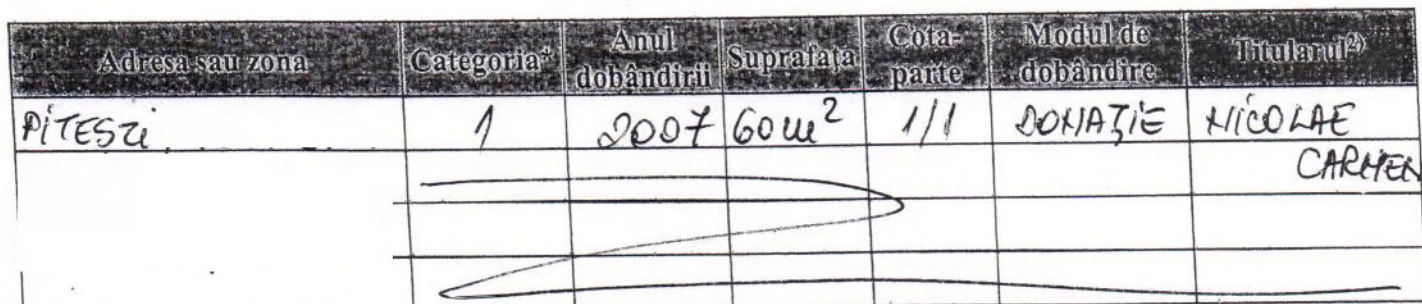 Adresa sau zona Categoria* Anul dobândirii Suprafața Cota-parte Modul de dobândire Titularul²⁾
PITEȘTI 1 2007 60 m² 1/1 DONAȚIE NICOLAE
CARMEN